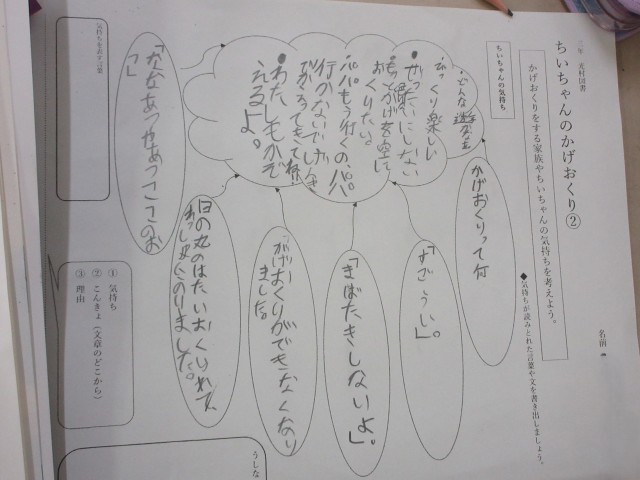 三年 光村図書
ちいちゃんのかげおくり②
名前
かげおくりをする家族やちいちゃんの気持ちを考えよう。
◆気持ちが読みとれた言葉や文を書き出しましょう。
ちいちゃんの気持ち
・どんな遊び
びっくり楽しい
・ぜったいにしない
もっとかげを空に
おくりたい。
・パパもう行くの、パパ
行かないで
わたしもかぞ
えるよ。
かげおくりって何
「すごうい」。
「まばたきしないよ」。
かげおくりができなくなり
ました。
日の丸のはたに
れっしゃにのりました。
「ななあつ、やあっつ、ここのお
つ」
気持ちを表す言葉
① 気持ち
② こんきょ（文章のどこから）
③ 理由
うしな